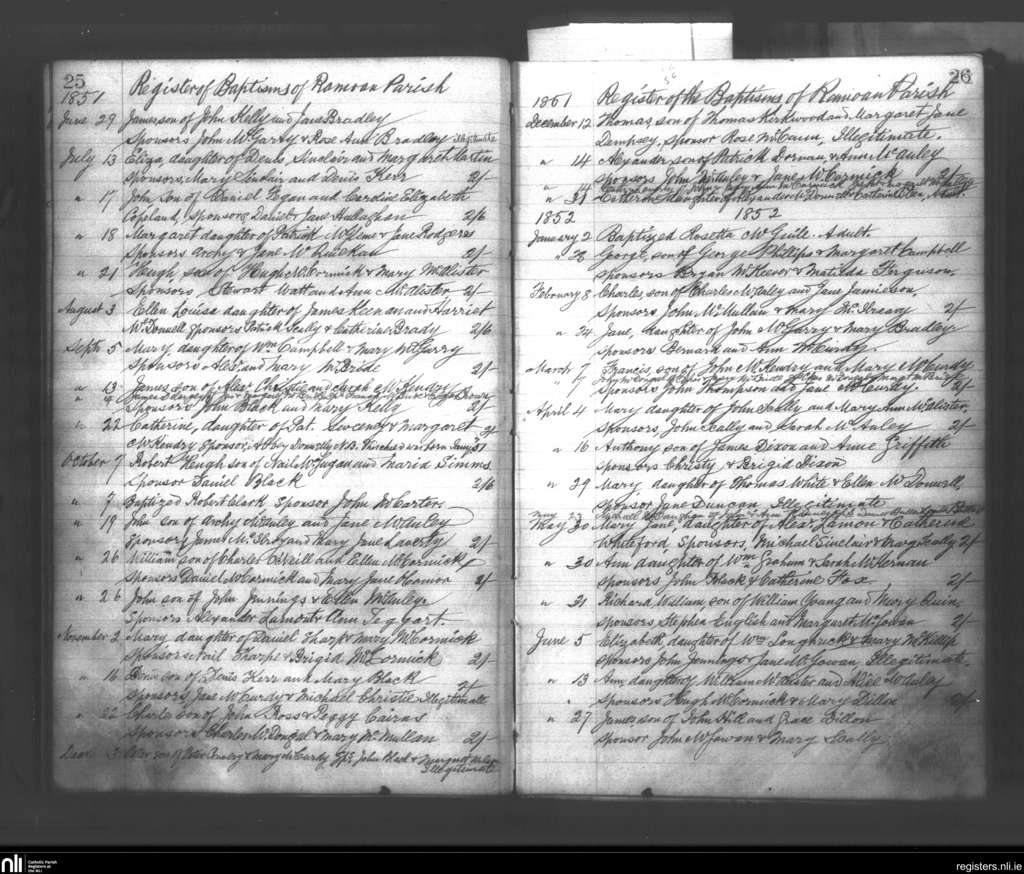 25
1851 Register of Baptisms of Ramoan Parish
June 29 James son of John Kelly and Jane Bradley
Sponsors John McGarty & Rose Ann Bradley Illegitimate
July 13 Eliza, daughter of Denis Sinclair and Margaret Martin
sponsors, Mary Sinclair and Denis Kerr 2/-
" 17 John Son of Daniel Fegan and Caroline Elizabeth
Copeland, sponsors Daniel & Jane Hallaghan 2/6
" 18 Margaret daughter of Patrick & Jane Rodgers
Sponsors Archy & Jane 2/-
" 21 Hugh son of Hugh McCormick & Mary McAlister
Sponsors Stewart Watt and Ann McAlester 2/-
August 3 Ellen Louisa daughter of James Keenan and Harriet
McDonnell sponsors Patrick Scally & Catherine Brady 2/6
Septr 5 Mary, daughter of Wm Campbell & Mary McGarry
Sponsors Alexr and Mary McBride 2/-
" 13 James son of Alexr Christie and Sarah McKendry
Sponsors John Black and Mary Kelly 2/-
" 22 Catherine, daughter of Pat. Sweeney & Margaret
McKendry sponsor, Abbey Donnelly N.B. The child was born
October 7 Robert Hugh son of Neil McGugan and Maria Simms
Sponsor Daniel Black 2/6
" 7 Baptized Robert Clark Sponsor John McCarter
" 19 John son of Archy McAuley and Jane McAuley
Sponsors James and Mary Jane Laverty 2/-
" 26 William son of Charles O'Neill and Ellen McCormick
Sponsors Daniel McCormick and Mary Jane 2/-
" 26 John son of John Jennings & Ellen McAuley
Sponsors Alexander Lamont & Ann Teggart.
November 2 Mary daughter of Daniel Tharp & Mary McCormick
Sponsors Neil Tharpe & Brigid McCormick 2/-
" 16 Denis son of Denis Kerr and Mary Black
Sponsors Jane McCurdy & Michael Christie Illegitimate 2/-
" 22 Charles son of John Ross & Peggy Cairns
Sponsors Charles McDougal & Mary McMullan 2/-
3 Peter son of Peter & Mary McCurdy John Black & Margaret
Illegitimate
26
1851 Register of the Baptisms of Ramoan Parish
December 12 Thomas, son of Thomas Kirkwood and Margaret Jane
Dempsey, Sponsor Rose McCann, Illegitimate.
" 14 Alexander son of Patrick Dornan, & Ann McAuley
sponsors John McAuley & Jane McCormick 2/-
" 21 Catherine daughter of Alexander
1852 1852
January 2 Baptized Rosetta McNeill. Adult
" 28 George son of George Phillips & Margaret Campbell
Sponsors Bryan McKeever & Matilda Ferguson.
February 8 Charles, son of Charles McAuley and Jane Jamieson,
Sponsors John McMullan & Mary 2/-
" 24 Jane, daughter of John McGarry & Mary Bradley
sponsors Bernard and Ann McCurdy.
March 7 Francis, son of John McKendry and Mary McCurdy
sponsors John Thompson and Jane McCurdy 2/-
April 4 Mary daughter of John Scally and Mary Ann McAlister,
Sponsors, John Scally and Sarah McAuley 2/-
" 16 Anthony son of James Dixon and Anne Griffith
sponsors Christy & Brigid Dixon
" 29 Mary daughter of Thomas White & Ellen McDonnell,
sponsor Jane Duncan Illegitimate
May 30 Mary Jane, daughter of Alexr Lamon & Catherine
Whiteford, Sponsors, Michael Sinclair & Margt Scally 2/-
" 30 Ann daughter of Wm Graham & Sarah McKernan
sponsors John Black & Catherine Fox 2/-
" 31 Richard William, son of William and Mary Quin,
sponsors Stephen English and Margaret McGowan 2/-
June 5 Elizabeth, daughter of Wm & Mary McKillip
sponsors John Jennings & Jane McGowan, Illegitimate.
" 13 Ann, daughter of William McAlester and Alice McAulay
Sponsors Hugh McCormick & Mary Dillon 2/-
" 27 James son of John Hill and Grace Dillon
sponsor John McGowan & Mary Scally
nli Catholic Parish
Registers at
the NLI
registers.nli.ie